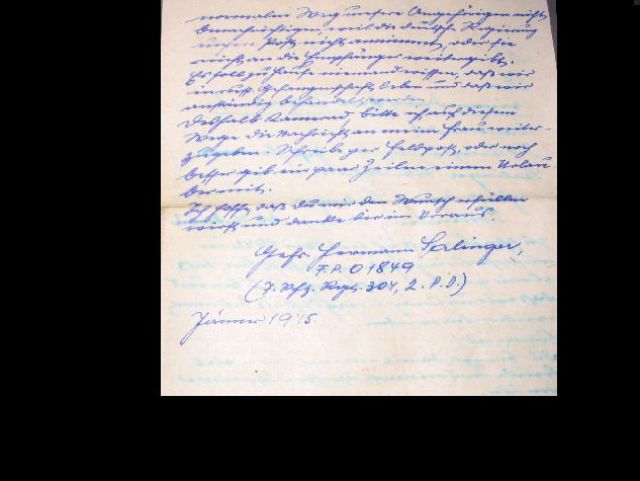 normalen Weg unsere Angehörigen nicht
benachrichtigen, weil die deutsche Regierung
unsere Post nicht annimmt, oder sie
nicht an die Empfänger weitergibt.
Es soll zu Hause niemand wissen, daß wir
in russ. Gefangenschaft leben und daß wir
anständig behandelt werden.
Deshalb Kamerad, bitte ich auf diesem
Wege die Nachricht an meine Frau weiter-
zugeben. Schreibe per Feldpost, oder noch
besser gib ein paar Zeilen einem Urlau-
ber mit.
Ich hoffe, daß du mir den Wunsch erfüllen
wirst und danke dir im Voraus.
Gefr. Hermann Salinger,
F.P. 01849
(Schtz. Regt. 304, 2. P.D.)
Jänner 1945.